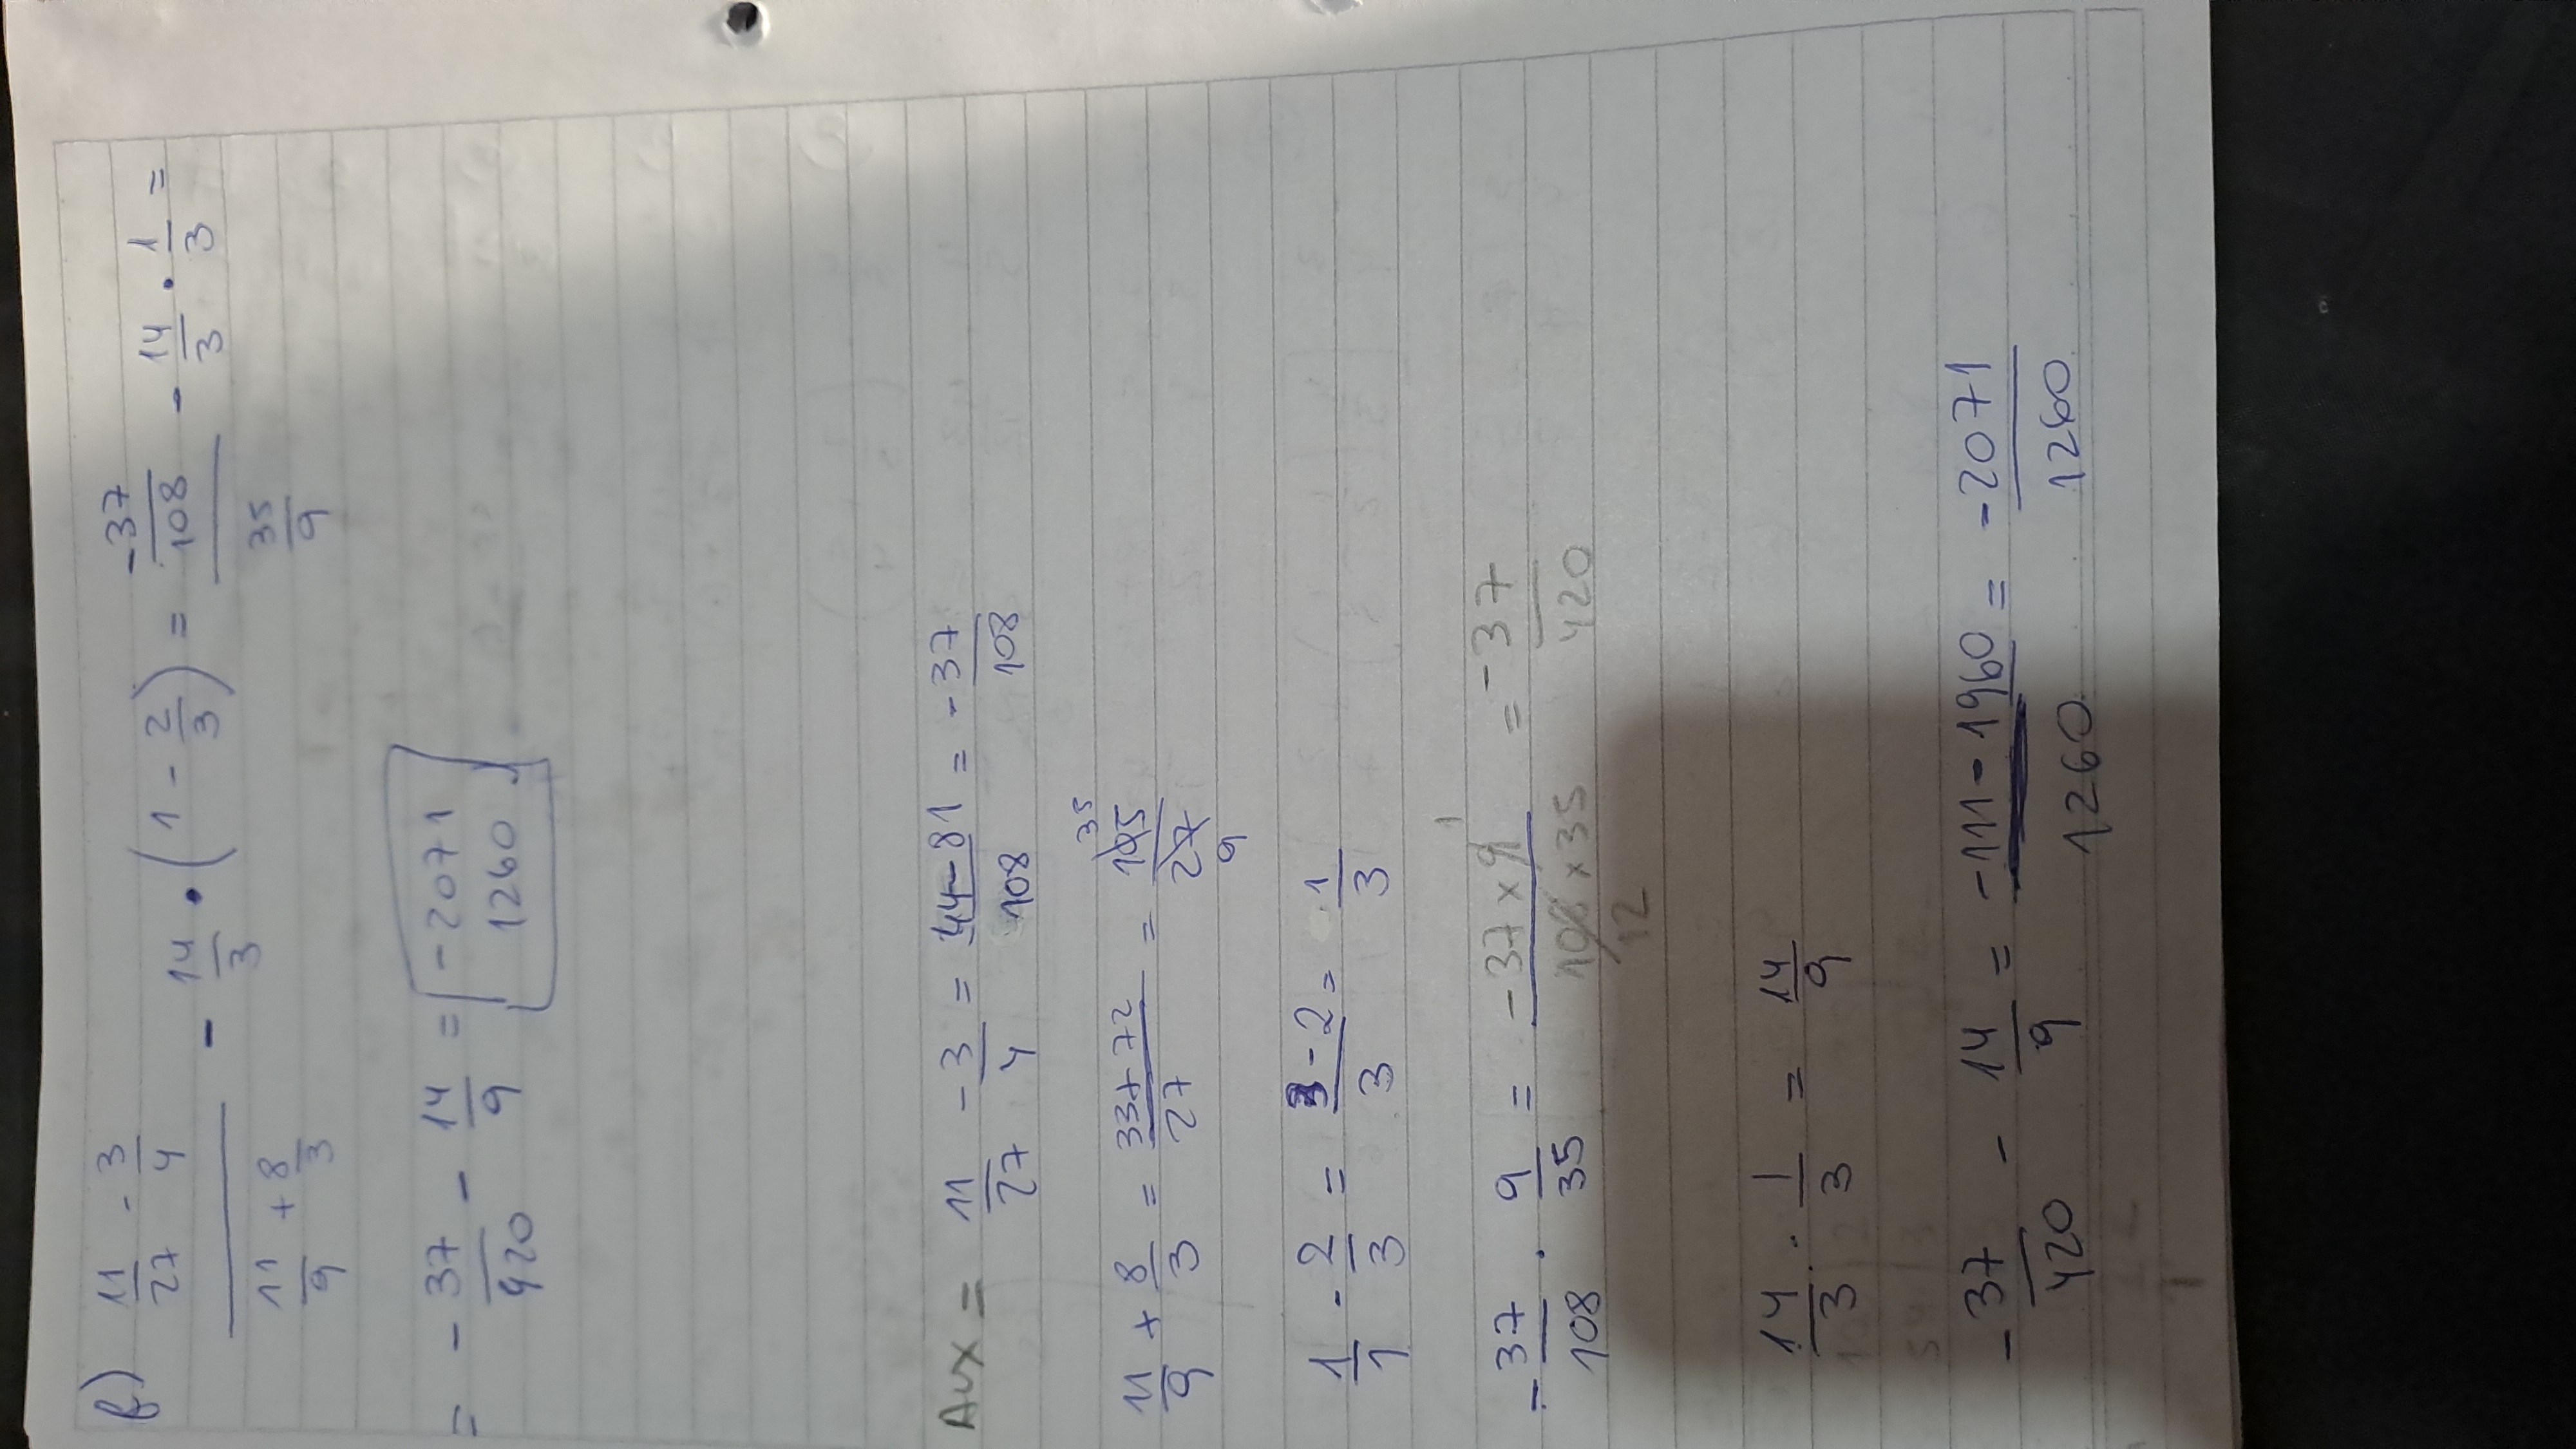 f) (11/27 - 3/4)/(11/9 + 8/3) - 14/3 • (1 - 2/3) = (-37/108)/(35/9) - 14/3 · 1/3 =
= - 37/420 - 14/9 = -2071/1260
Aux = 11/27 - 3/4 = 44-81/108 = -37/108
11/9 + 8/3 = 33+72/27 = 105/27 35/9
1/1 - 2/3 = 3-2/3 = 1/3
- 37/108 · 9/35 = -37 x 9/108 x 35 1/12 = -37/420
14/3 · 1/3 = 14/9
- 37/420 - 14/9 = -111-1960/1260 = -2071/1260